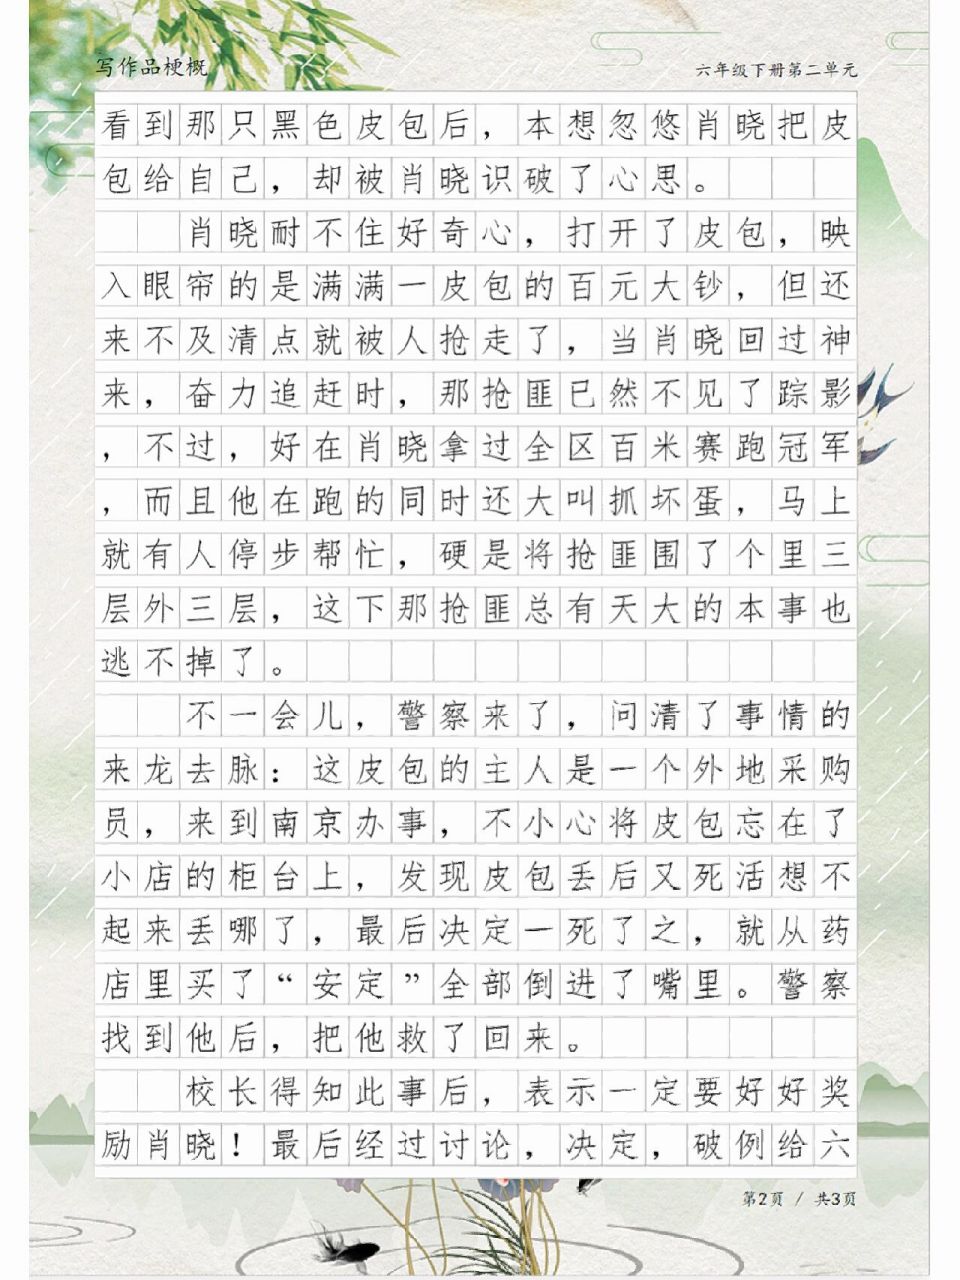 写作品梗概
六年级下册第二单元
看到那只黑色皮包后，本想忽悠肖晓把皮
包给自己，却被肖晓识破了心思。
肖晓耐不住好奇心，打开了皮包，映
入眼帘的是满满一皮包的百元大钞，但还
来不及清点就被人抢走了，当肖晓回过神
来，奋力追赶时，那抢匪已然不见了踪影
，不过，好在肖晓拿过全区百米赛跑冠军
，而且他在跑的同时还大叫抓坏蛋，马上
就有人停步帮忙，硬是将抢匪围了个里三
层外三层，这下那抢匪总有天大的本事也
逃不掉了。
不一会儿，警察来了，问清了事情的
来龙去脉：这皮包的主人是一个外地采购
员，来到南京办事，不小心将皮包忘在了
小店的柜台上，发现皮包丢后又死活想不
起来丢哪了，最后决定一死了之，就从药
店里买了“安定”全部倒进了嘴里。警察
找到他后，把他救了回来。
校长得知此事后，表示一定要好好奖
励肖晓！最后经过讨论，决定，破例给六
第2页 / 共3页